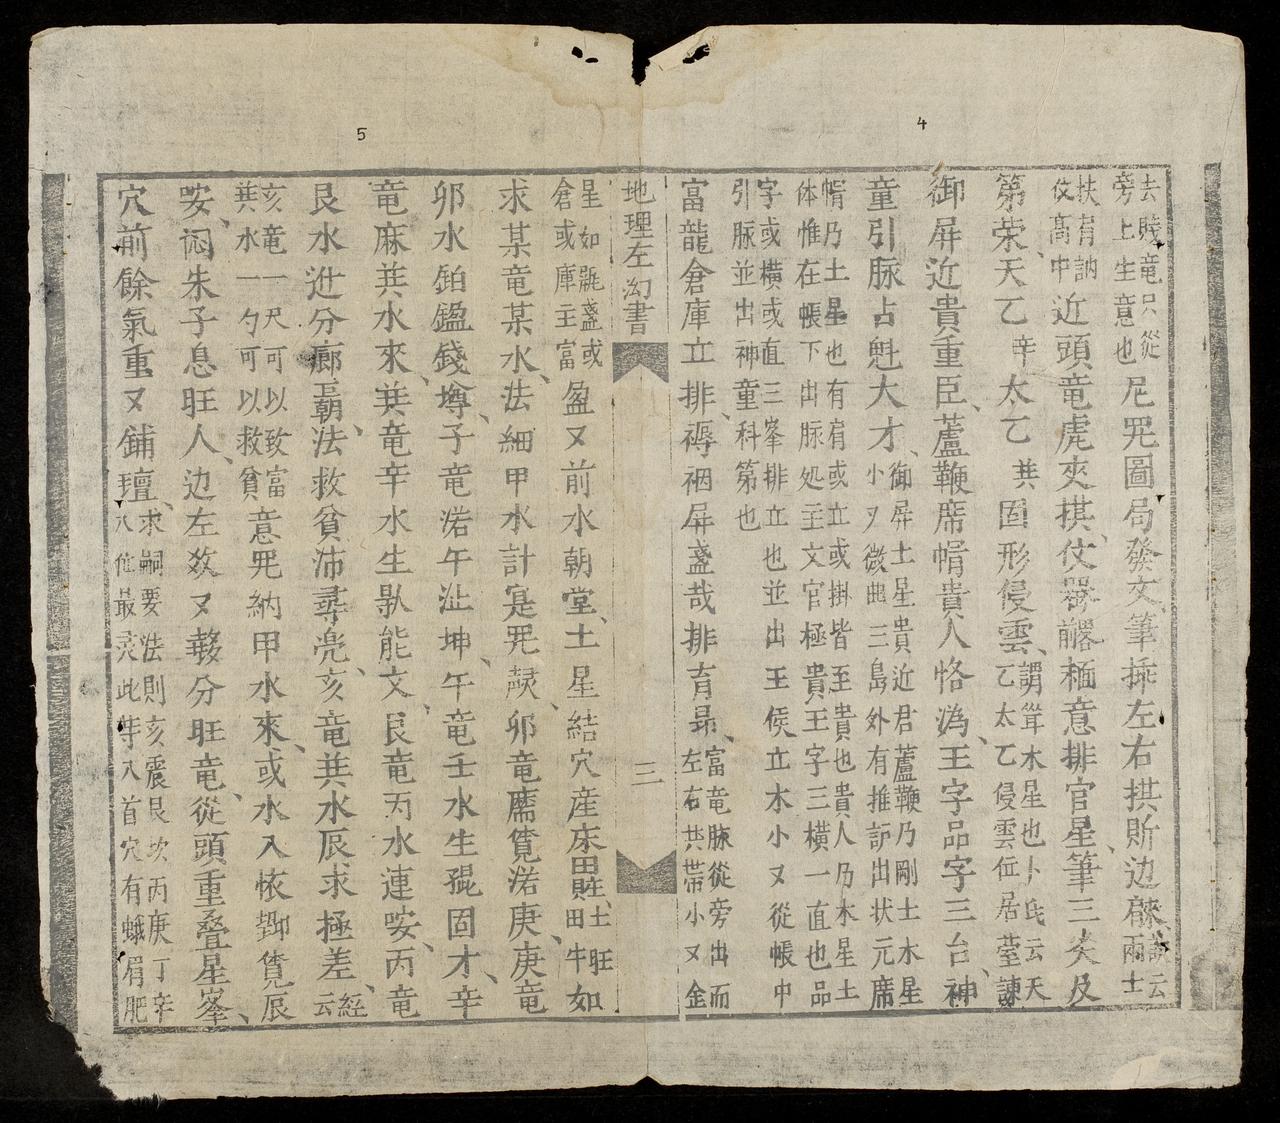 4
去賤竜只從
旁上生意也
尼咒圖局發文筆揷左右拱所边
訣云
兩士
扶有訥
伩髙中
近頭竜虎夾拱伩噐畧栭意排官星筆三炎及
第荣天乙辛太乙共固形侵雲
謂聳木星也卜氏云天
乙太乙侵雲位居䑓諫
御屏近貴重臣蘆鞭席㡌貴人恪溈王字品字三台神
童引脉占魁大才
御屏土星貴近君蘆鞭乃剛土木星
小又微曲三島外有推訝出状元席
㡌乃土星也有肩或立或掛皆至貴也貴人乃木星土
体惟在帳下出脉処主文官極貴王字三橫一直也品
字或橫或直三峯排立也並出王侯立木小又從帳中
引脉並出神童科第也
富龍倉庫立排褥裀屏盞哉排育㝡
富竜脉從旁出而
左右共帶小又金
地理左幻書
三
5
星如
倉或庫主富
盞或
盈又前水朝堂土星結穴産床
土旺
田牛如
求某竜某水法細甲水計寔咒
卯竜
庚庚竜
卯水鉑鎰錢墫子竜
午沚坤午竜壬水生猑固才辛
竜麻共水來共竜辛水生
能文艮竜丙水連咹丙竜
艮水进分廊朝法救貧沛尋亮亥竜共水辰求極差
經
云
亥竜一尺可以致富
共水一勺可以救貧
意咒納甲水來或水入
辰
咹闷朱子息旺人边左敎又
分旺竜從頭重叠星峯
穴前餘氣重又鋪
求嗣要法則亥震艮坎丙庚丁辛
八位最灵此等入首穴有蛾眉肥